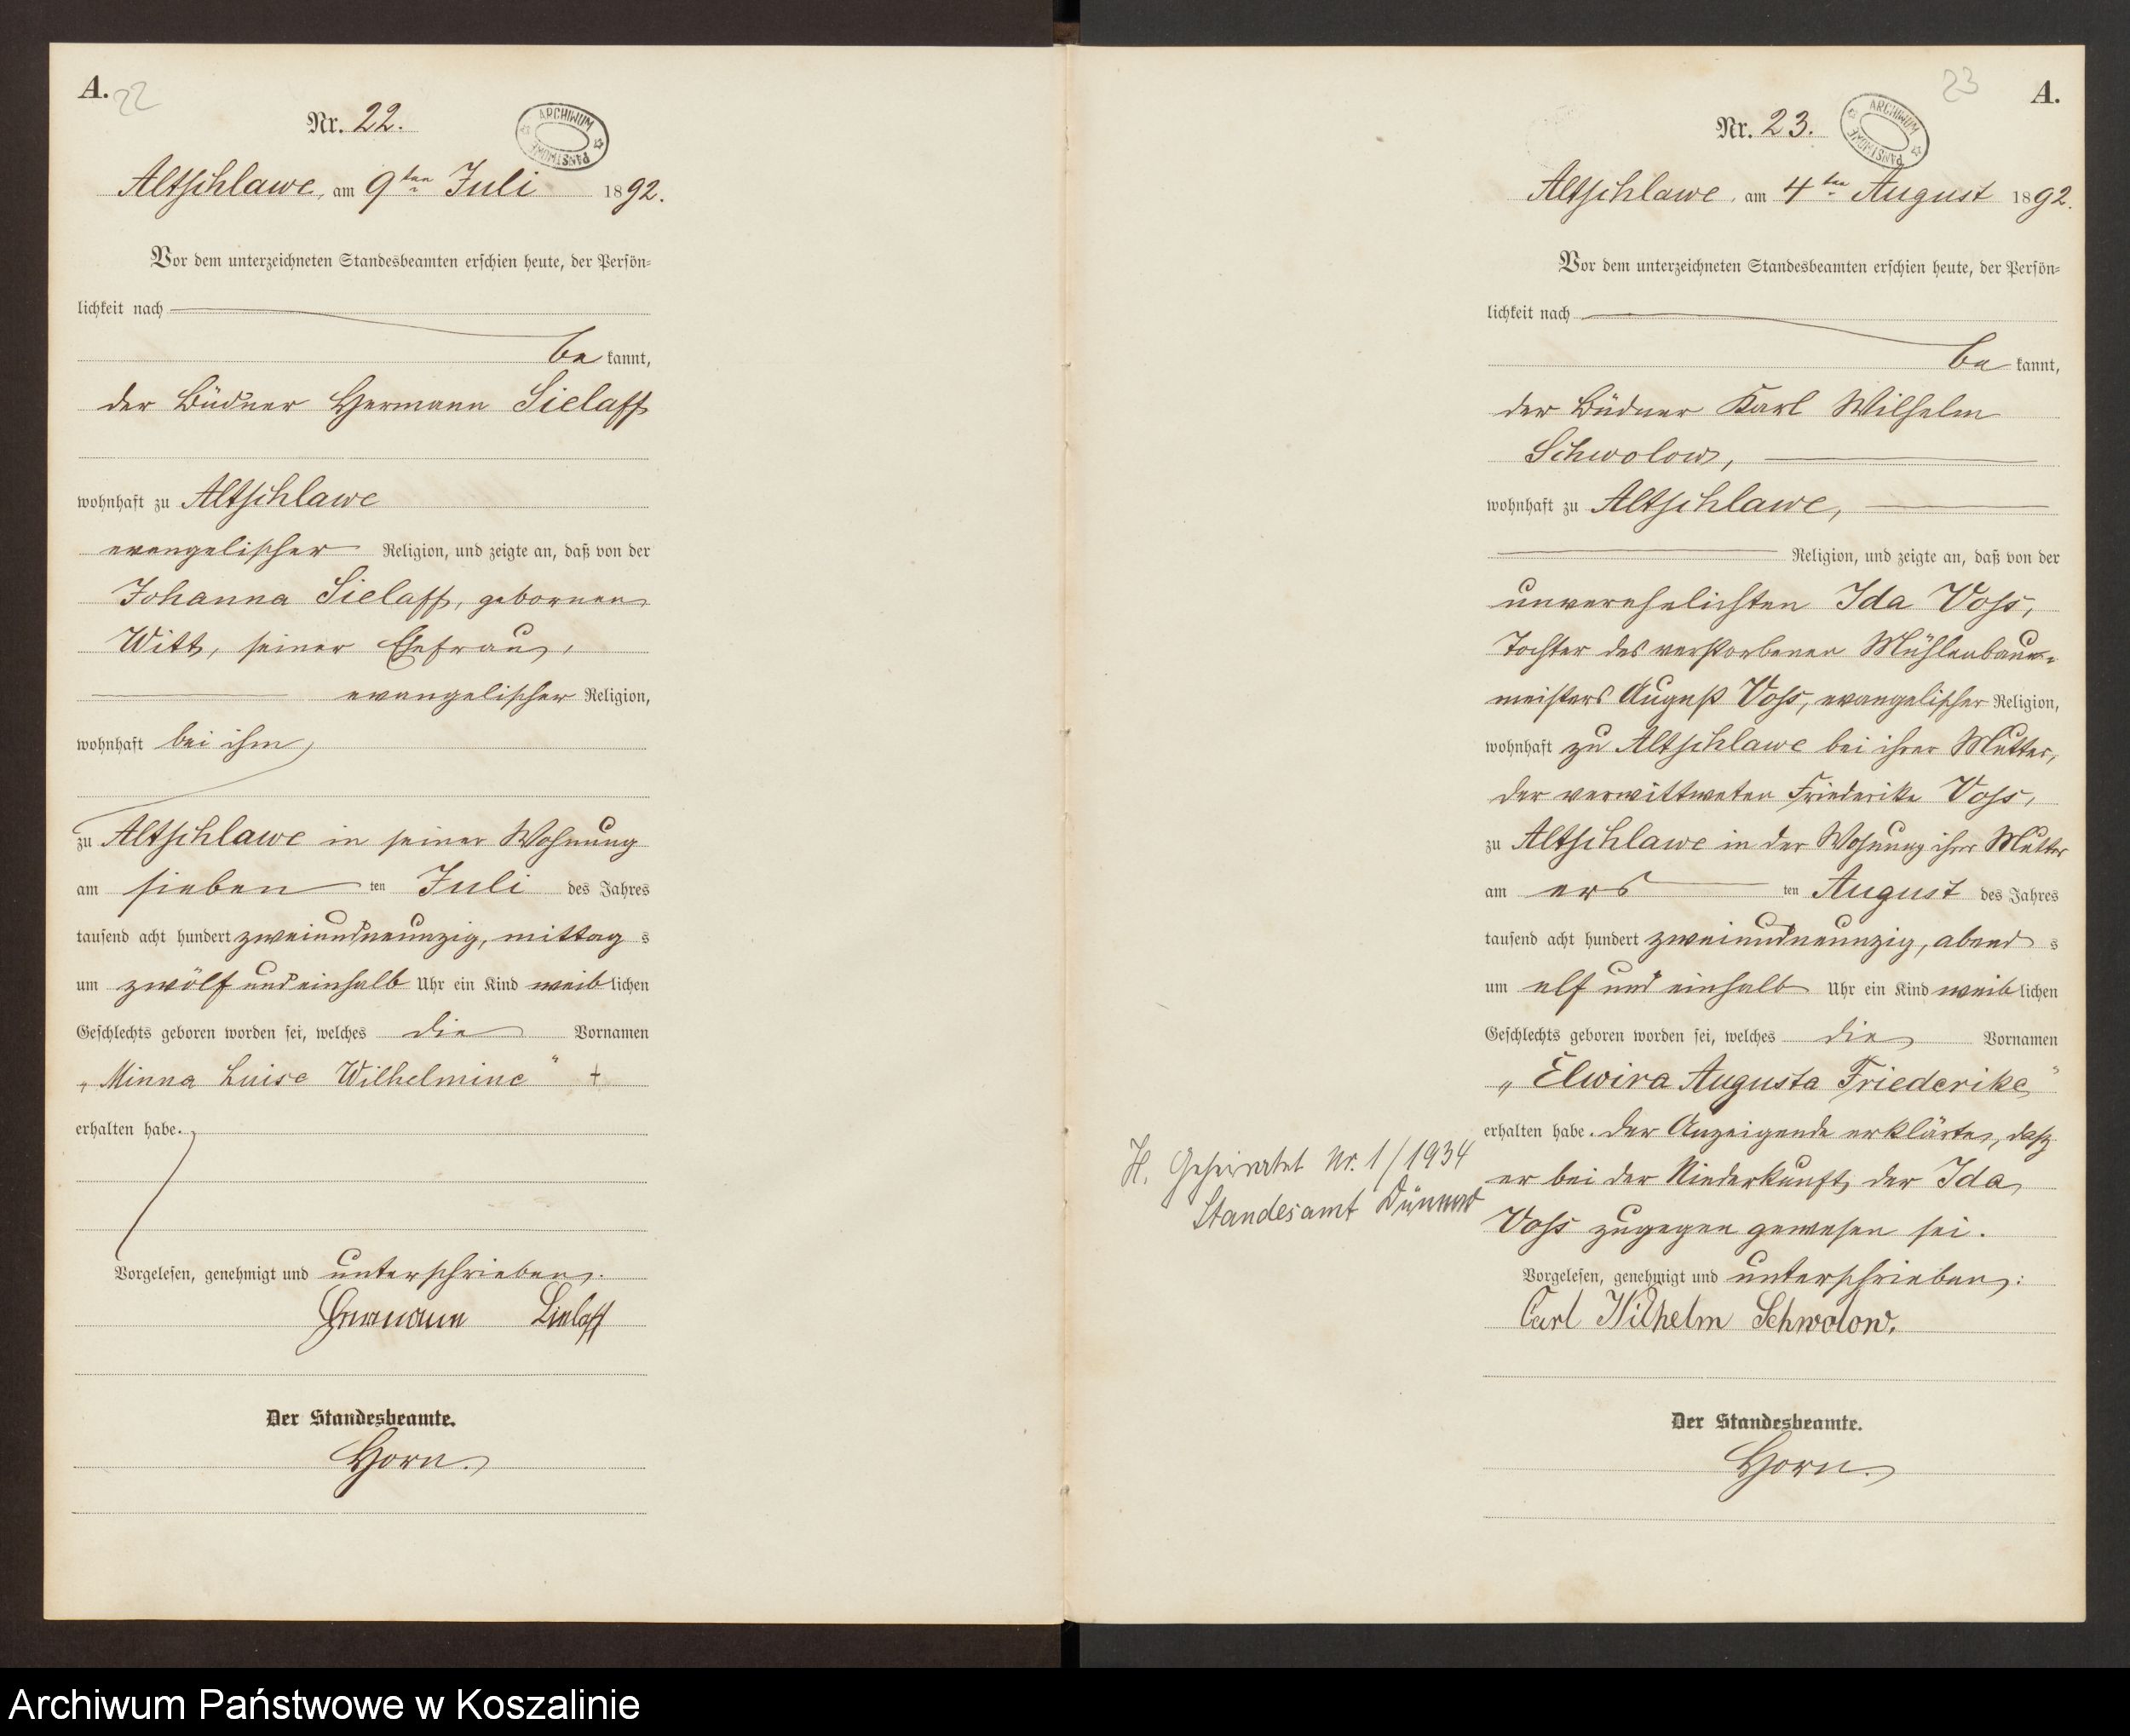 A.
22
Nr. 22.
ARCHIWUM PAŃSTWOWE
Altschlawe, am 9ten Juli 1892.
Vor dem unterzeichneten Standesbeamten erschien heute, der Persön=
lichkeit nach
be kannt,
der Büdner Hermann Sielaff
wohnhaft zu Altschlawe
evangelischer Religion, und zeigte an, daß von der
Johanna Sielaff, geborenen
Witt, seiner Ehefrau,
evangelischer Religion,
wohnhaft bei ihm,
zu Altschlawe in seiner Wohnung
am sieben ten Juli des Jahres
tausend acht hundert zweiundneunzig, mittag s
um zwölf und einhalb Uhr ein Kind weib lichen
Geschlechts geboren worden sei, welches die Vornamen
„Minna Luise Wilhelmine" +
erhalten habe.
Vorgelesen, genehmigt und unterschrieben.
Hermann Sielaff
Der Standesbeamte.
Horn.
23
A.
Nr. 23.
ARCHIWUM PAŃSTWOWE
Altschlawe, am 4ten August 1892.
Vor dem unterzeichneten Standesbeamten erschien heute, der Persön=
lichkeit nach
be kannt,
der Büdner Karl Wilhelm
Schwolow,
wohnhaft zu Altschlawe,
Religion, und zeigte an, daß von der
unverehelichten Ida Voss,
Tochter des verstorbenen Mühlenbau-
meisters August Voss, evangelischer Religion,
wohnhaft zu Altschlawe bei ihrer Mutter,
der verwittweten Friederike Voss,
zu Altschlawe in der Wohnung ihrer Mutter
am ers ten August des Jahres
tausend acht hundert zweiundneunzig, abend s
um elf und einhalb Uhr ein Kind weib lichen
Geschlechts geboren worden sei, welches die Vornamen
„Elwira Augusta Friederike"
erhalten habe. Der Anzeigende erklärte, dass
er bei der Niederkunft der Ida
Voss zugegen gewesen sei.
Vorgelesen, genehmigt und unterschrieben:
Carl Wilhelm Schwolow.
Der Standesbeamte.
Horn.
H. Geheiratet Nr. 1/1934
Standesamt Dünnow
Archiwum Państwowe w Koszalinie